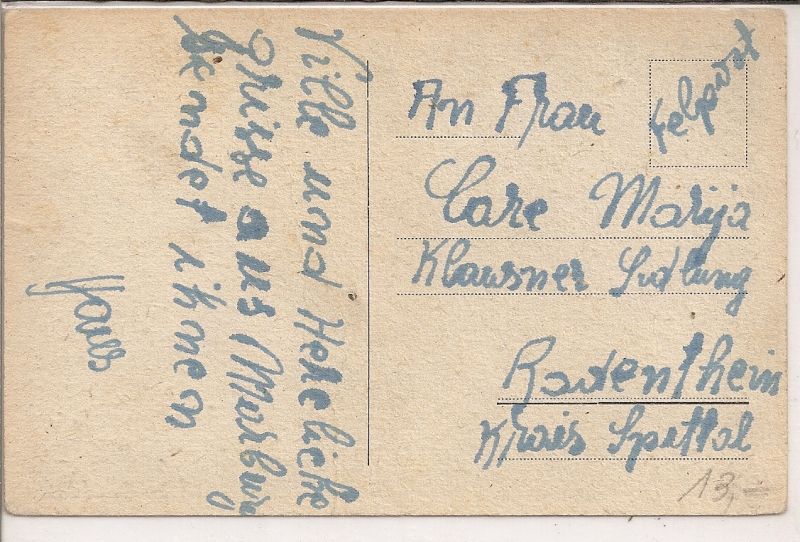 Ville und Herliche
Grüsse aus Marburg
sendet ihnen
Hans
An Frau
Felpost
Care Marija
Klausner Sidlung
Radenthein
Krais Spittal
13,-